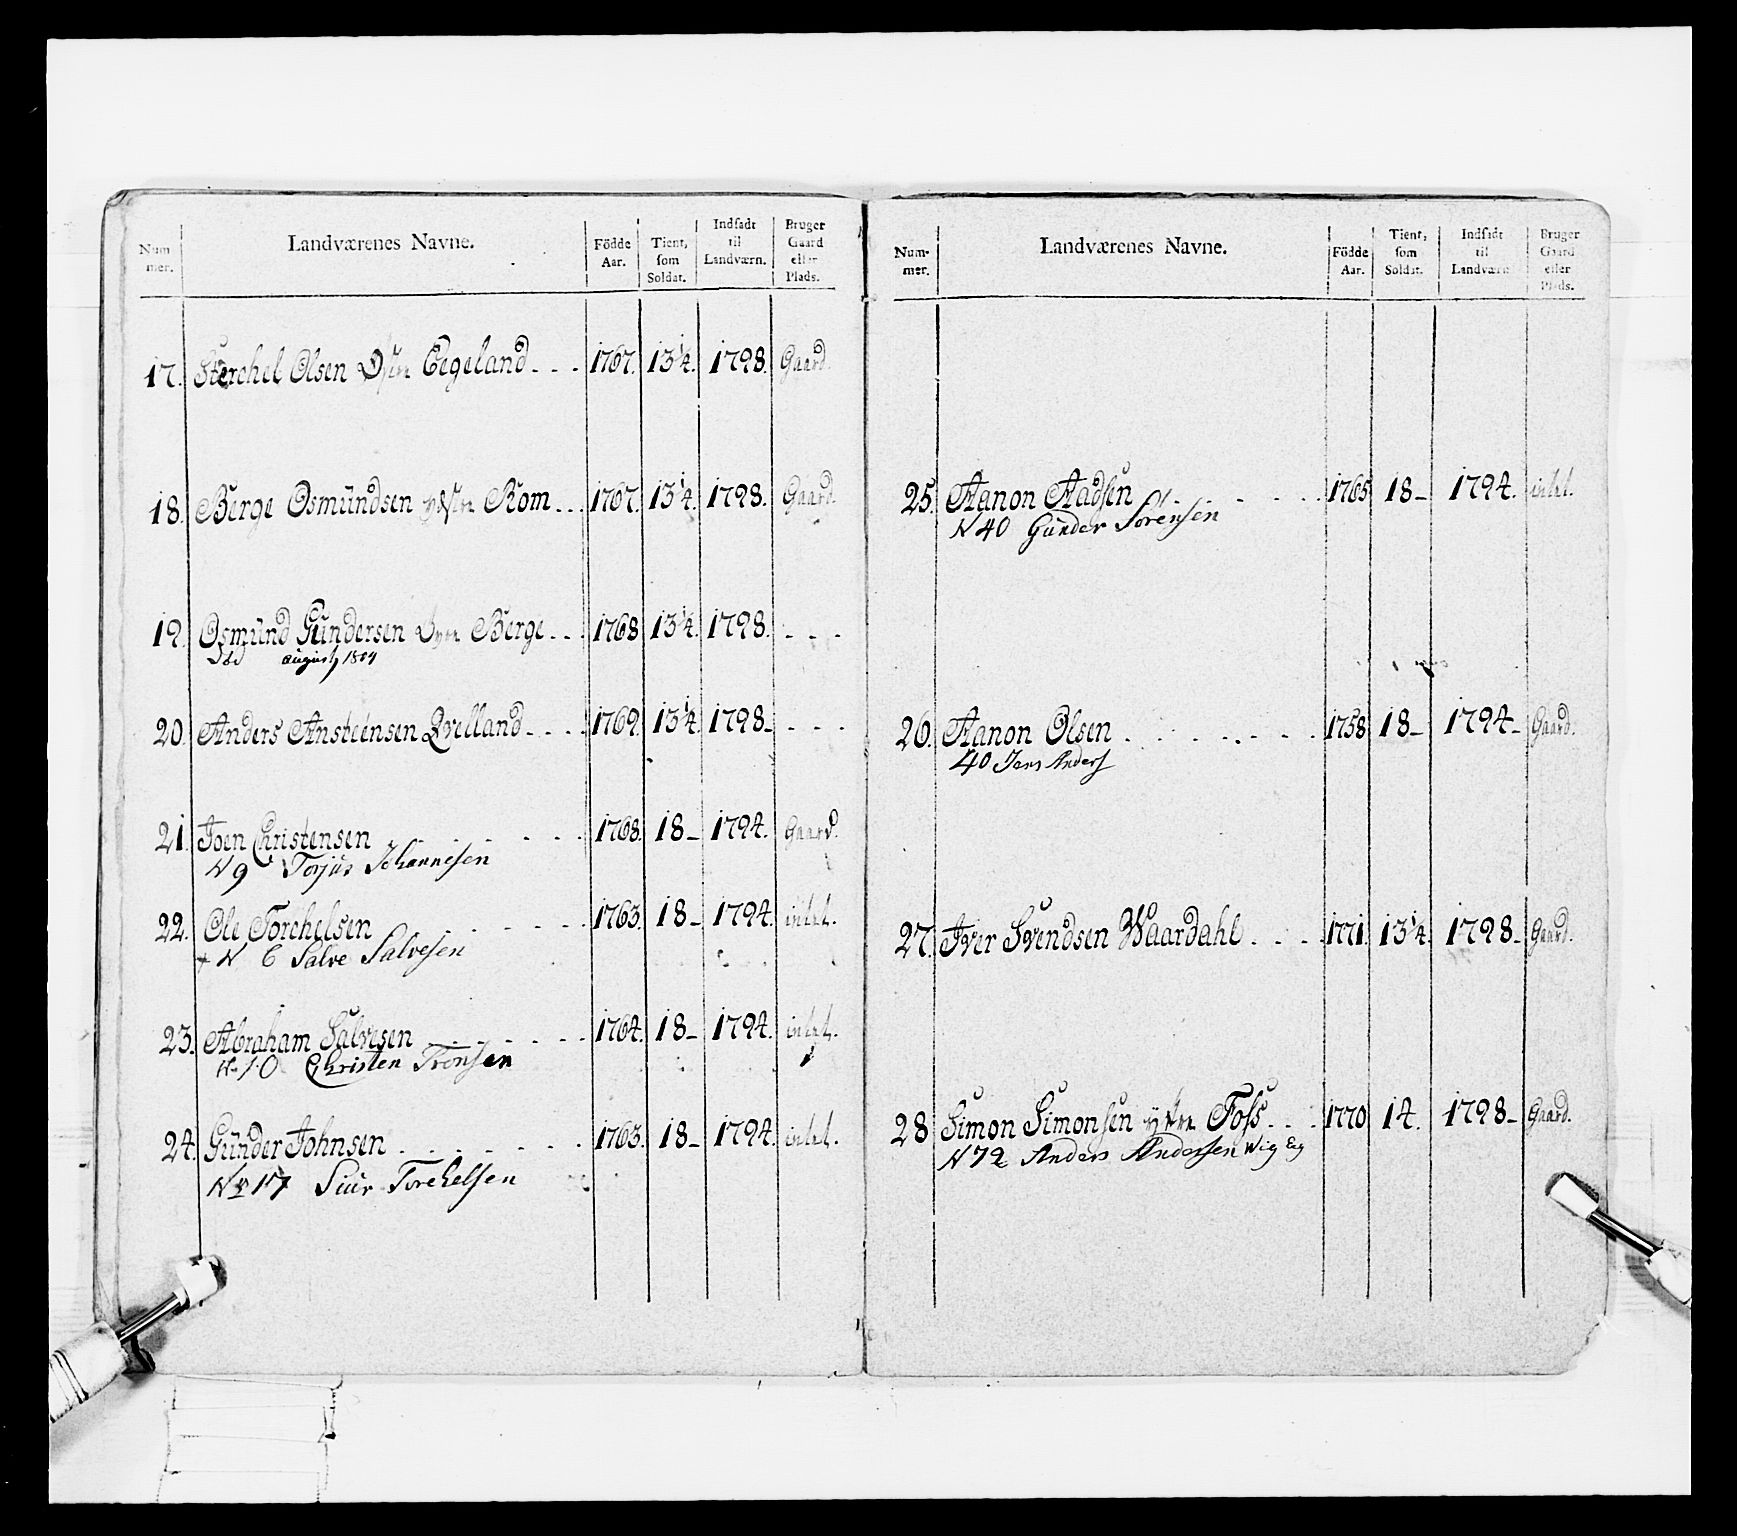 Num mer. Landværenes Navne. Födde Aar. Tient, som Soldat. Indsadt til Landværn. Bruger Gaard eller Plads.
17. Sterchel Olsen Egeland 1767. 13¼. 1798. Gaard.
18. Berge Osmündsen Rom 1767. 13¼. 1798. Gaard.
19. Osmünd Gündersen Berge 1768 13¼. 1798.
august 1804
20. Anders Ansteensen Qvelland 1769. 13¼. 1798
21. Joen Christensen 1768. 18 1794. Gaard.
N 9 Torjus Johannesen
22. Ole Torchelsen 1763. 18 1794. intet.
+ N 6 Salve Salvesen
23. Abraham Salvesen 1764. 18 1794. intet.
No 10 Christen Tronsen
24. Günder Johnsen 1763. 18 1794. intet.
No 17 Siur Torchelsen
Num- mer. Landværenes Navne. Födde Aar. Tient, som Soldat. Indsadt til Landværn Bruger Gaard eller Plads.
25. Aanon Aadsen 1765 18 1794. intet.
N 40 Günder Sörensen
26. Aanon Olsen 1758 18 1794 Gaard.
40 Jens Anders
27. Iver Svendsen Waardahl 1771. 13¼. 1798 Gaard.
28 Simon Simonsen ytre Foss 1770 14. 1798 Gaard.
N 72 Anders Andersen Wig Eg